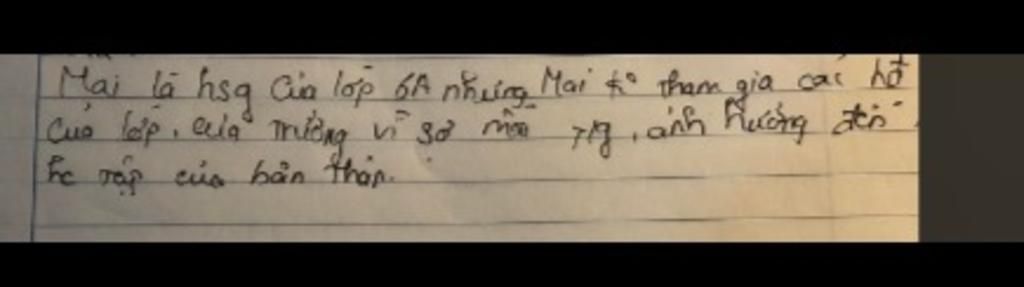 Mai là hsg của lớp 6A nhưng Mai k° tham gia các hđ
của lớp, của trường vì sợ mất t/g, ảnh hưởng đến
hc tập của bản thân.